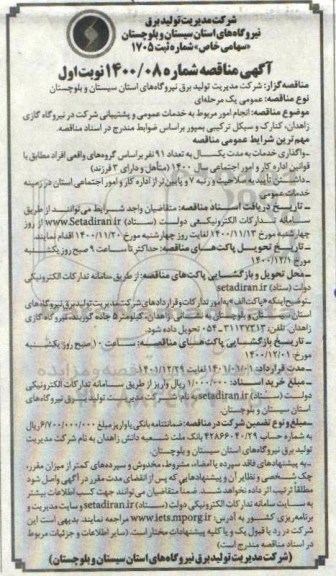 شرکت مدیریت تولید برق
نیروگاه‌های استان سیستان و بلوچستان
«سهامی خاص» شماره ثبت ۱۷۰۵
آگهی مناقصه شماره ۱۴۰۰/۰۸ نوبت اول
مناقصه‌گزار: شرکت مدیریت تولید برق نیروگاه‌های استان سیستان و بلوچستان
نوع مناقصه: عمومی یک مرحله‌ای
موضوع مناقصه: انجام امور مربوط به خدمات عمومی و پشتیبانی شرکت در نیروگاه گازی
زاهدان، کنارک و سیکل ترکیبی بمپور براساس ضوابط مندرج در اسناد مناقصه.
مهم‌ترین شرایط عمومی مناقصه
ـ واگذاری خدمات به مدت یکسال به تعداد ۹۱ نفر براساس گروه‌های واقعی افراد مطابق با
قوانین اداره کار و امور اجتماعی سال ۱۴۰۰ (متأهل و دارای ۲ فرزند)
ـ داشتن تأییدیه صلاحیت و رتبه ۷ و پایین تر از اداره کار و امور اجتماعی استان در زمینه
خدمات عمومی
ـ تاریخ دریافت اسناد مناقصه: متقاضیان واجد شرایط می‌توانند از طریق
سامانه تدارکات الکترونیکی دولت (ستاد) www.Setadiran.ir از روز
چهارشنبه مورخ ۱۴۰۰/۱۱/۱۳ لغایت روز چهارشنبه مورخ ۱۴۰۰/۱۱/۲۰ اقدام نمایند.
ـ تاریخ تحویل پاکت‌های مناقصه: حداکثر تا ساعت ۹ صبح روز یکشنبه
مورخ ۱۴۰۰/۱۲/۱
ـ محل تحویل و بازگشایی پاکت‌های مناقصه: از طریق سامانه تدارکات الکترونیکی
دولت (ستاد) setadiran.ir
توضیح اینکه «پاکت الف» به امور تدارکات و قراردادهای شرکت مدیریت تولید برق نیروگاه‌های
استان سیستان و بلوچستان به نشانی زاهدان، کیلومتر جاده گوربند، نیروگاه گازی
زاهدان. تلفن: ۳۱۱۳۷۲۱۳-۰۵۴ تحویل داده شود.
ـ تاریخ بازگشایی پاکت‌های مناقصه: ساعت ۱۰ صبح روز یکشنبه
مورخ ۱۴۰۰/۱۲/۰۱
ـ مدت قرارداد: ۱۴۰۱/۰۱/۰۱ لغایت ۱۴۰۱/۱۲/۲۹
ـ مبلغ خرید اسناد: ۱/۰۰۰/۰۰۰ ریال واریز از طریق سامانه تدارکات الکترونیکی
دولت (ستاد) setadiran.ir به نام شرکت مدیریت تولید برق نیروگاه‌های
استان سیستان و بلوچستان.
ـ مبلغ و نوع تضمین شرکت در مناقصه: ضمانتنامه بانکی یا واریز مبلغ ۶/۷۰۰/۰۰۰/۰۰۰ ریال
به شماره حساب بانک ملت شعبه دانش زاهدان به نام شرکت مدیریت
تولید برق نیروگاه‌های استان سیستان و بلوچستان.
ـ به پیشنهادهای فاقد سپرده یا امضاء، مشروط، مخدوش و سپرده‌های کمتر از میزان مقرر،
چک شخصی و نظایر آن و پیشنهادهایی که پس از انقضای مدت مقرر در آگهی واصل شود
مطلقا ترتیب اثر داده نخواهد شد. ضمنا متقاضیان می‌توانند جهت کسب اطلاعات بیشتر
به سایت سامانه تدارکات الکترونیکی دولت (ستاد) setadiran.ir و سایت مدیریت و
برنامه‌ریزی کشور به آدرس: www.iets.mporg.ir مراجعه نمایند. بدیهی است این
شرکت در رد یا قبول یک و یا کلیه پیشنهادات مختار است. (سایر اطلاعات و جزئیات مربوط
در اسناد مناقصه مندرج است)
(شرکت مدیریت تولید برق نیروگاه‌های استان سیستان و بلوچستان)